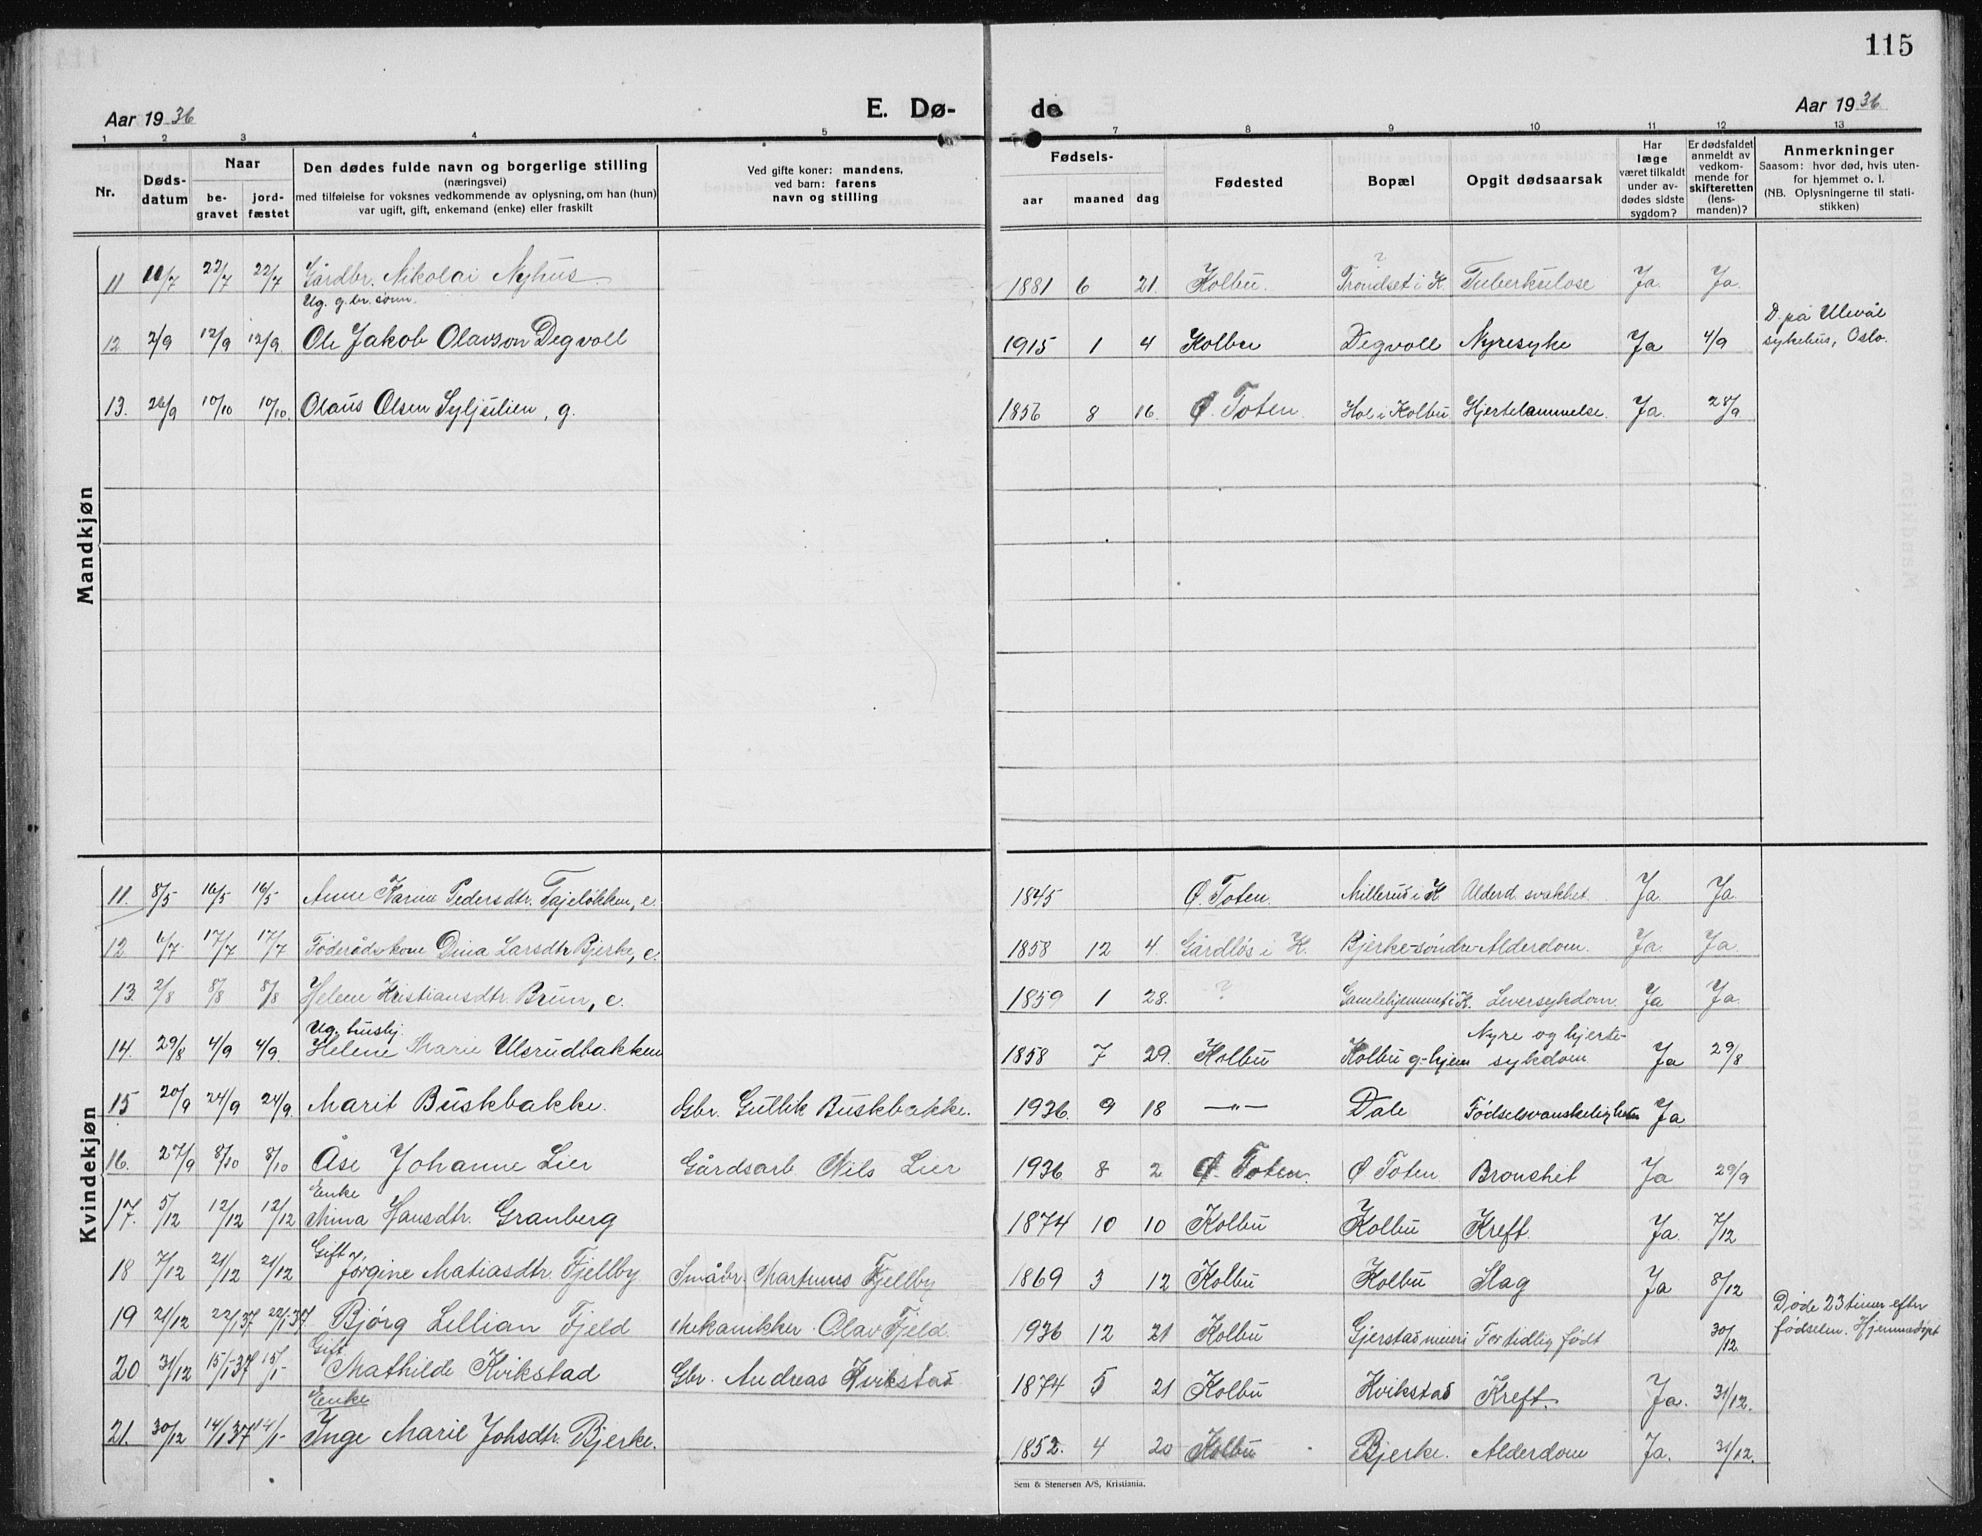 115
Aar 1936
E. Dø-
de
Aar 1936
1 2 3 4 5 7 8 9 10 11 12 13
Nr.
Døds-
datum
Naar
be-
gravet
jord-
fæstet
Den dødes fulde navn og borgerlige stilling
(næringsvei)
med tilføielse for voksnes vedkommende av oplysning, om han (hun)
var ugift, gift, enkemand (enke) eller fraskilt
Ved gifte koner: mandens,
ved barn: farens
navn og stilling
Fødsels-
aar maaned dag
Fødested
Bopæl
Opgit dødsaarsak
Har
læge
været tilkaldt
under av-
dødes sidste
sygdom?
Er dødsfaldet
anmeldt av
vedkom-
mende for
skifteretten
(lens-
manden)?
Anmerkninger
Saasom: hvor død, hvis uten-
for hjemmet o. l.
(NB. Oplysningerne til stati-
stikken)
Mandkjøn
11 11/7 22/7 22/7 Gårdbr. Nikolai Nyhus. 1881 6 21. Kolbu. Trondset i K. ? Tuberkulose Ja. Ja.
Ug. g.br. sønn
12 2/9 12/9 12/9. Ole Jakob Olavson Degvoll 1915 1 4 Kolbu Degvoll Nyresyke Ja 4/9 D. på Ulevål
sykehus, Oslo.
13. 26/9 10/10 10/10. Olaus Olsen Syljulien, g. 1856 8 16. Ø. Toten. Hol i Kolbu Hjertelammelse. Ja. 28/9.
Kvindekjøn
11. 8/5 16/5 16/5 Anne Karine Pedersdtr. Tajeløkken, e. 1845 Ø. Toten. Millerud i K Alderd. svakhet. Ja Ja.
12. 6/7. 17/7 17/7 Föderådskone Dina Larsdtr. Bjerke, e. 1858 12 4. Gårdløs i K. Bjerke søndre Alderdom. Ja. Ja.
13. 2/8 8/8 8/8 Helene Kristiansdtr. Brun, e. 1859 1 28. ? Gamlehjemmet i K. Leversykdom. Ja Ja.
Ug. husbj.
14. 29/8 4/9 4/9. Helene Marie Ulsrudbakken 1858 7 29. Kolbu Kolbu g-hjem Nyre og hjerte-
sykdom Ja 29/8
15 20/9 24/9 24/9. Marit Buskbakke. Gbr. Gullik Buskbakke. 1936. 9 18 —"— Dale Fødselsvanskeligheter Ja
16. 27/9 8/10 8/10 Åse Johanne Lier Gårdsarb. Nils Lier 1936 8 2 Ø. Toten. Ø Toten Bronchit Ja 29/9
Enke
17. 5/12 12/12 12/12 Mina Hansdtr. Granberg 1874 10 10 Kolbu Kolbu Kreft. Ja. 7/12
Gift
18 7/12 21/12 21/12 Jørgine Matiasdtr. Fjellby Småbr. Martinus Fjellby 1869 3 12 Kolbu Kolbu Slag Ja 8/12
19 21/12 22/1 37 22/1 37. Bjørg Lillian Fjeld Mekanikker Olav Fjeld. 1936 12 21 Kolbu Gjerstad meieri For tidlig født 30/12. Døde 23 timer efter
fødselen. Hjemmedøpt
Gift
20 31/12 15/1-37 15/1- Mathilde Kvikstad Gbr. Andreas Kvikstad 1874 5 21 Kolbu Kvikstad Kreft. Ja. 31/12.
Enke
21. 30/12 14/1 37 14/1- Inge Marie Johsdtr. Bjerke. 1852. 4 20 Kolbu Bjerke. Alderdom Ja. 31/12.
Sem & Stenersen A/S, Kristiania.